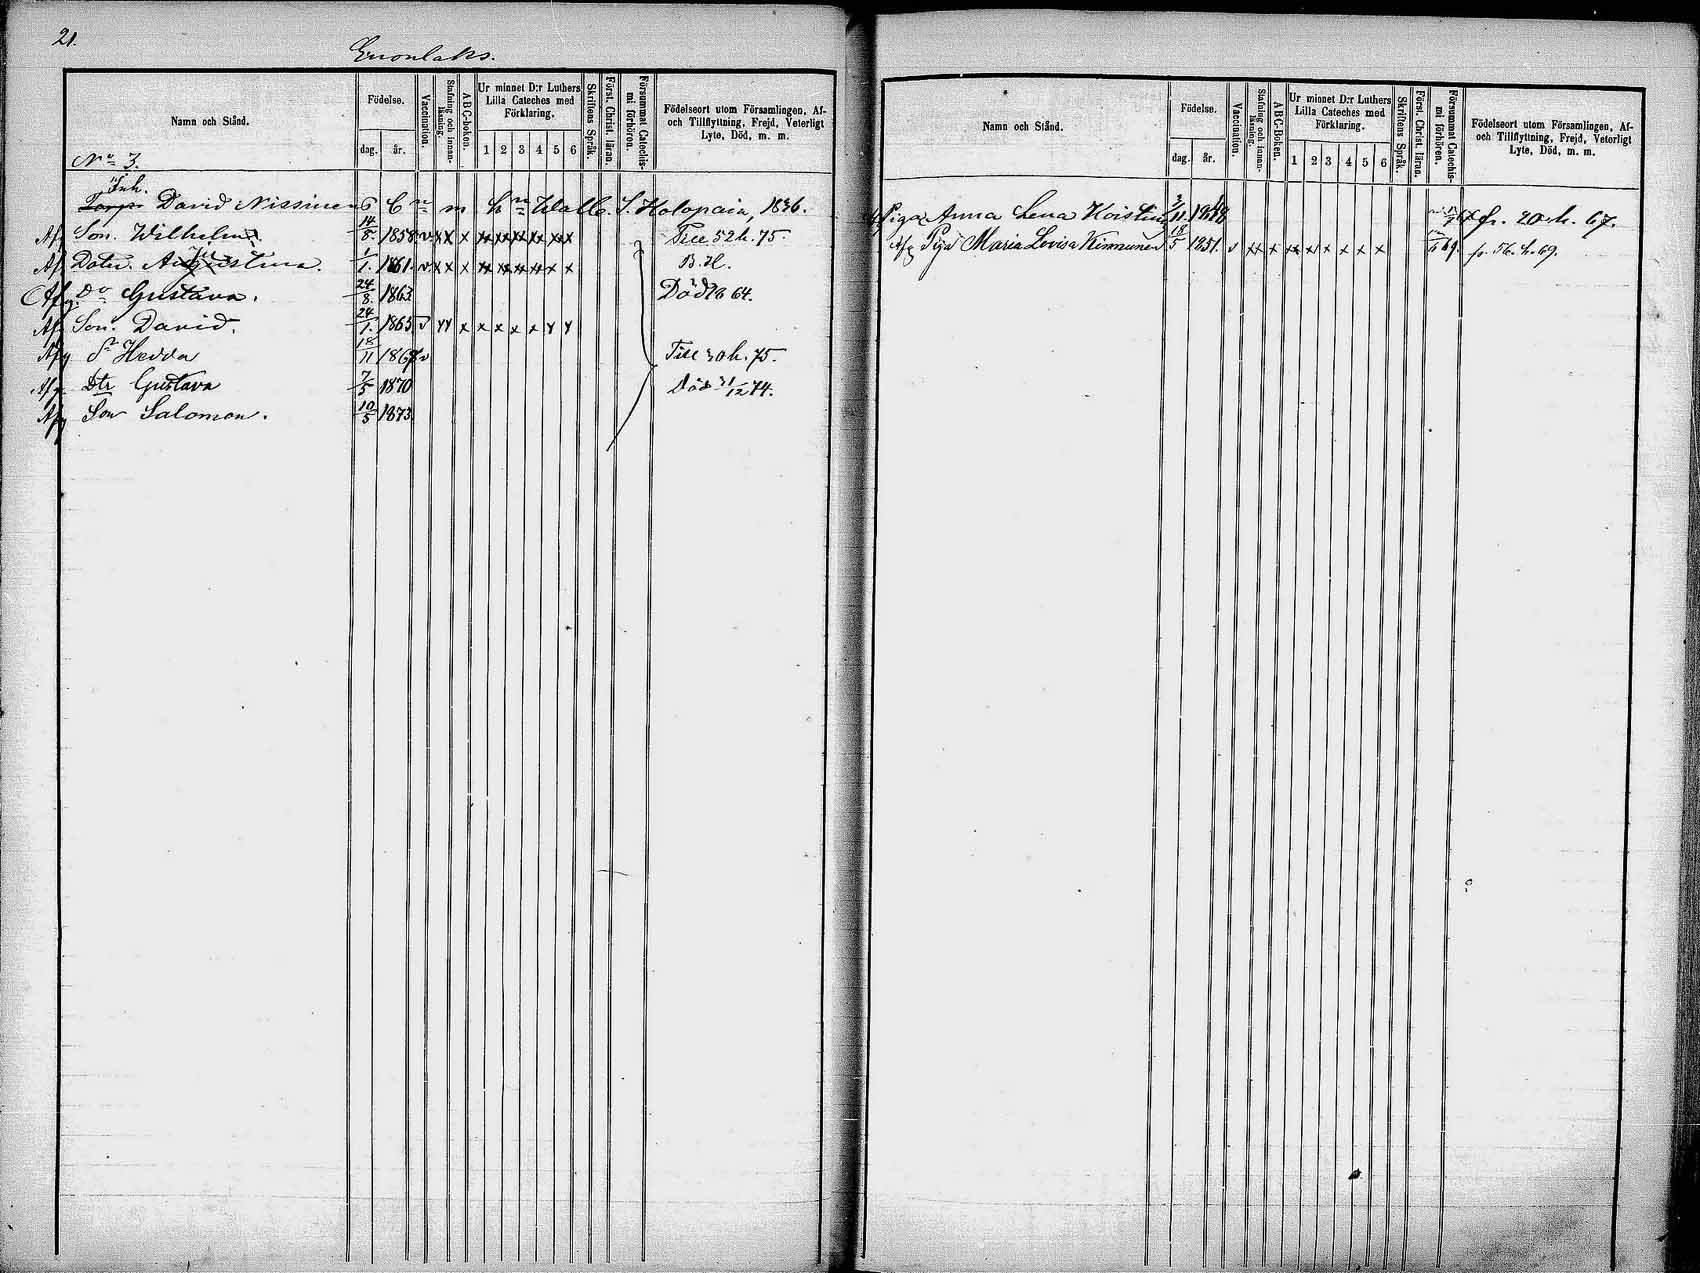 21.
Enonlaks.
Namn och Stånd.
Födelse.
dag. år.
Vaccination.
Stafning och innanläsning.
ABC-boken.
Ur minnet D:r Luthers Lilla Cateches med Förklaring.
1 2 3 4 5 6
Skriftens Språk.
Först. Christ. läran.
Försummat Catechismi förhören.
Födelseort utom Församlingen, Af- och Tillflyttning, Frejd, Veterligt Lyte, Död, m. m.
No 3.
Inh.
David Nissinen S. Holopain, 1836.
Af Son. Wilhelm 14/8. 1858 v x x x x x x x x x 52 h. 75.
Af Doter. 1/1. 1861. v x x x x x x x x x B. H.
Afg. Do Gustava. 24/8. 1863 Död 64.
Af Son. David. 24/1. 1865 v x x x x x x x x x
Afg Hedda 18/11 1867 v Till 30 h. 75.
Afg Dtr Gustava 7/5 1870 Död 31/12 74.
Afg Son Salomon. 10/5 1873.
Namn och Stånd.
Födelse.
dag. år.
Vaccination.
Stafning och innanläsning.
ABC-Boken.
Ur minnet D:r Luthers Lilla Cateches med Förklaring.
1 2 3 4 5 6
Skriftens Språk.
Först. Christ. läran.
Försummat Catechismi förhören.
Födelseort utom Församlingen, Af- och Tillflyttning, Frejd, Veterligt Lyte, Död, m. m.
Piga Anna Lena 3/11. fr. 20 h. 67.
Afg Piga Maria Lovisa Kinnunen 18/5 1851. v x x x x x x x x x 69. fr. 56. h. 69.